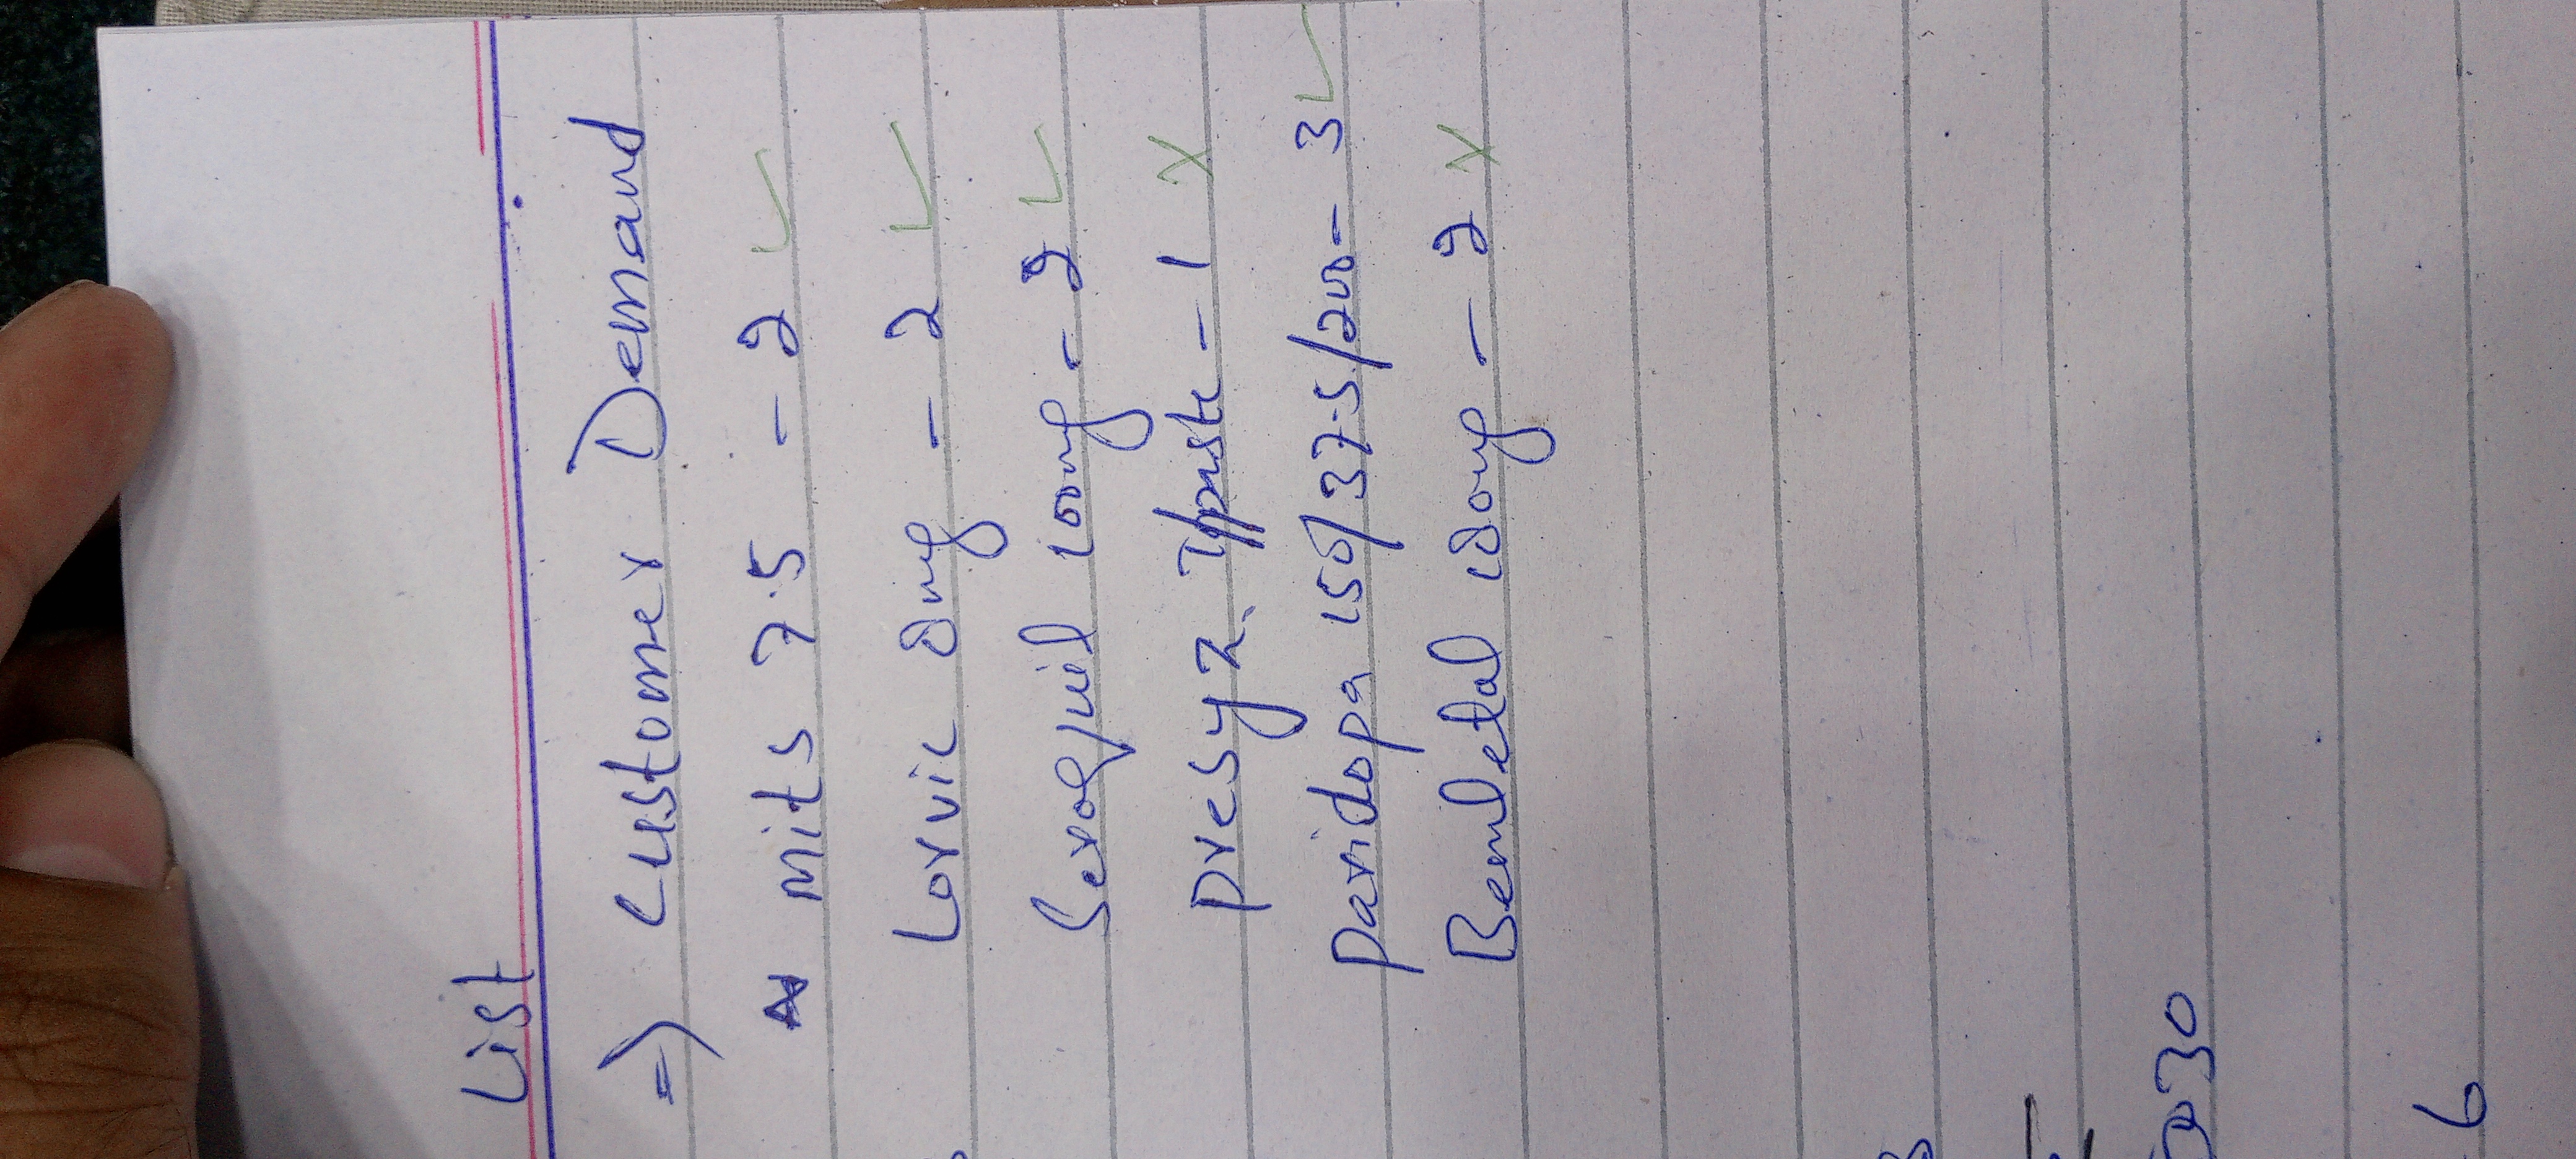 List
=> Customer Demand
mits 7.5 - 2 ✓
Lorvic 8mg - 2 ✓
Seroquil 100mg - 2 ✓
Presyz T/paste - 1 X
Paridopa 150/37.5/200 - 3 ✓
Bemdetal 180mg - 2 X
30
6